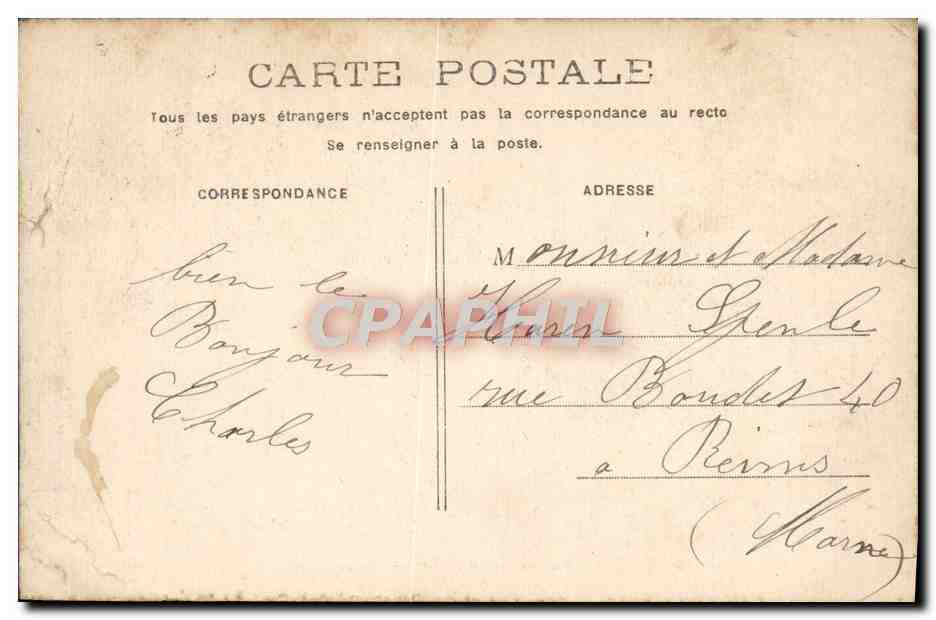 CARTE POSTALE
Tous les pays étrangers n'acceptent pas la correspondance au recto
Se renseigner à la poste.
CORRESPONDANCE
bien le
Bonjour
Charles
ADRESSE
Monsieur et Madame
Spenle
rue Boudet 40
a Reims
(Marne)
CPAPHIL